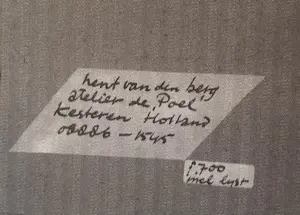 hent van den berg
atelier de Poel
Kesteren Holland
08886-1545
f.700
incl lyst